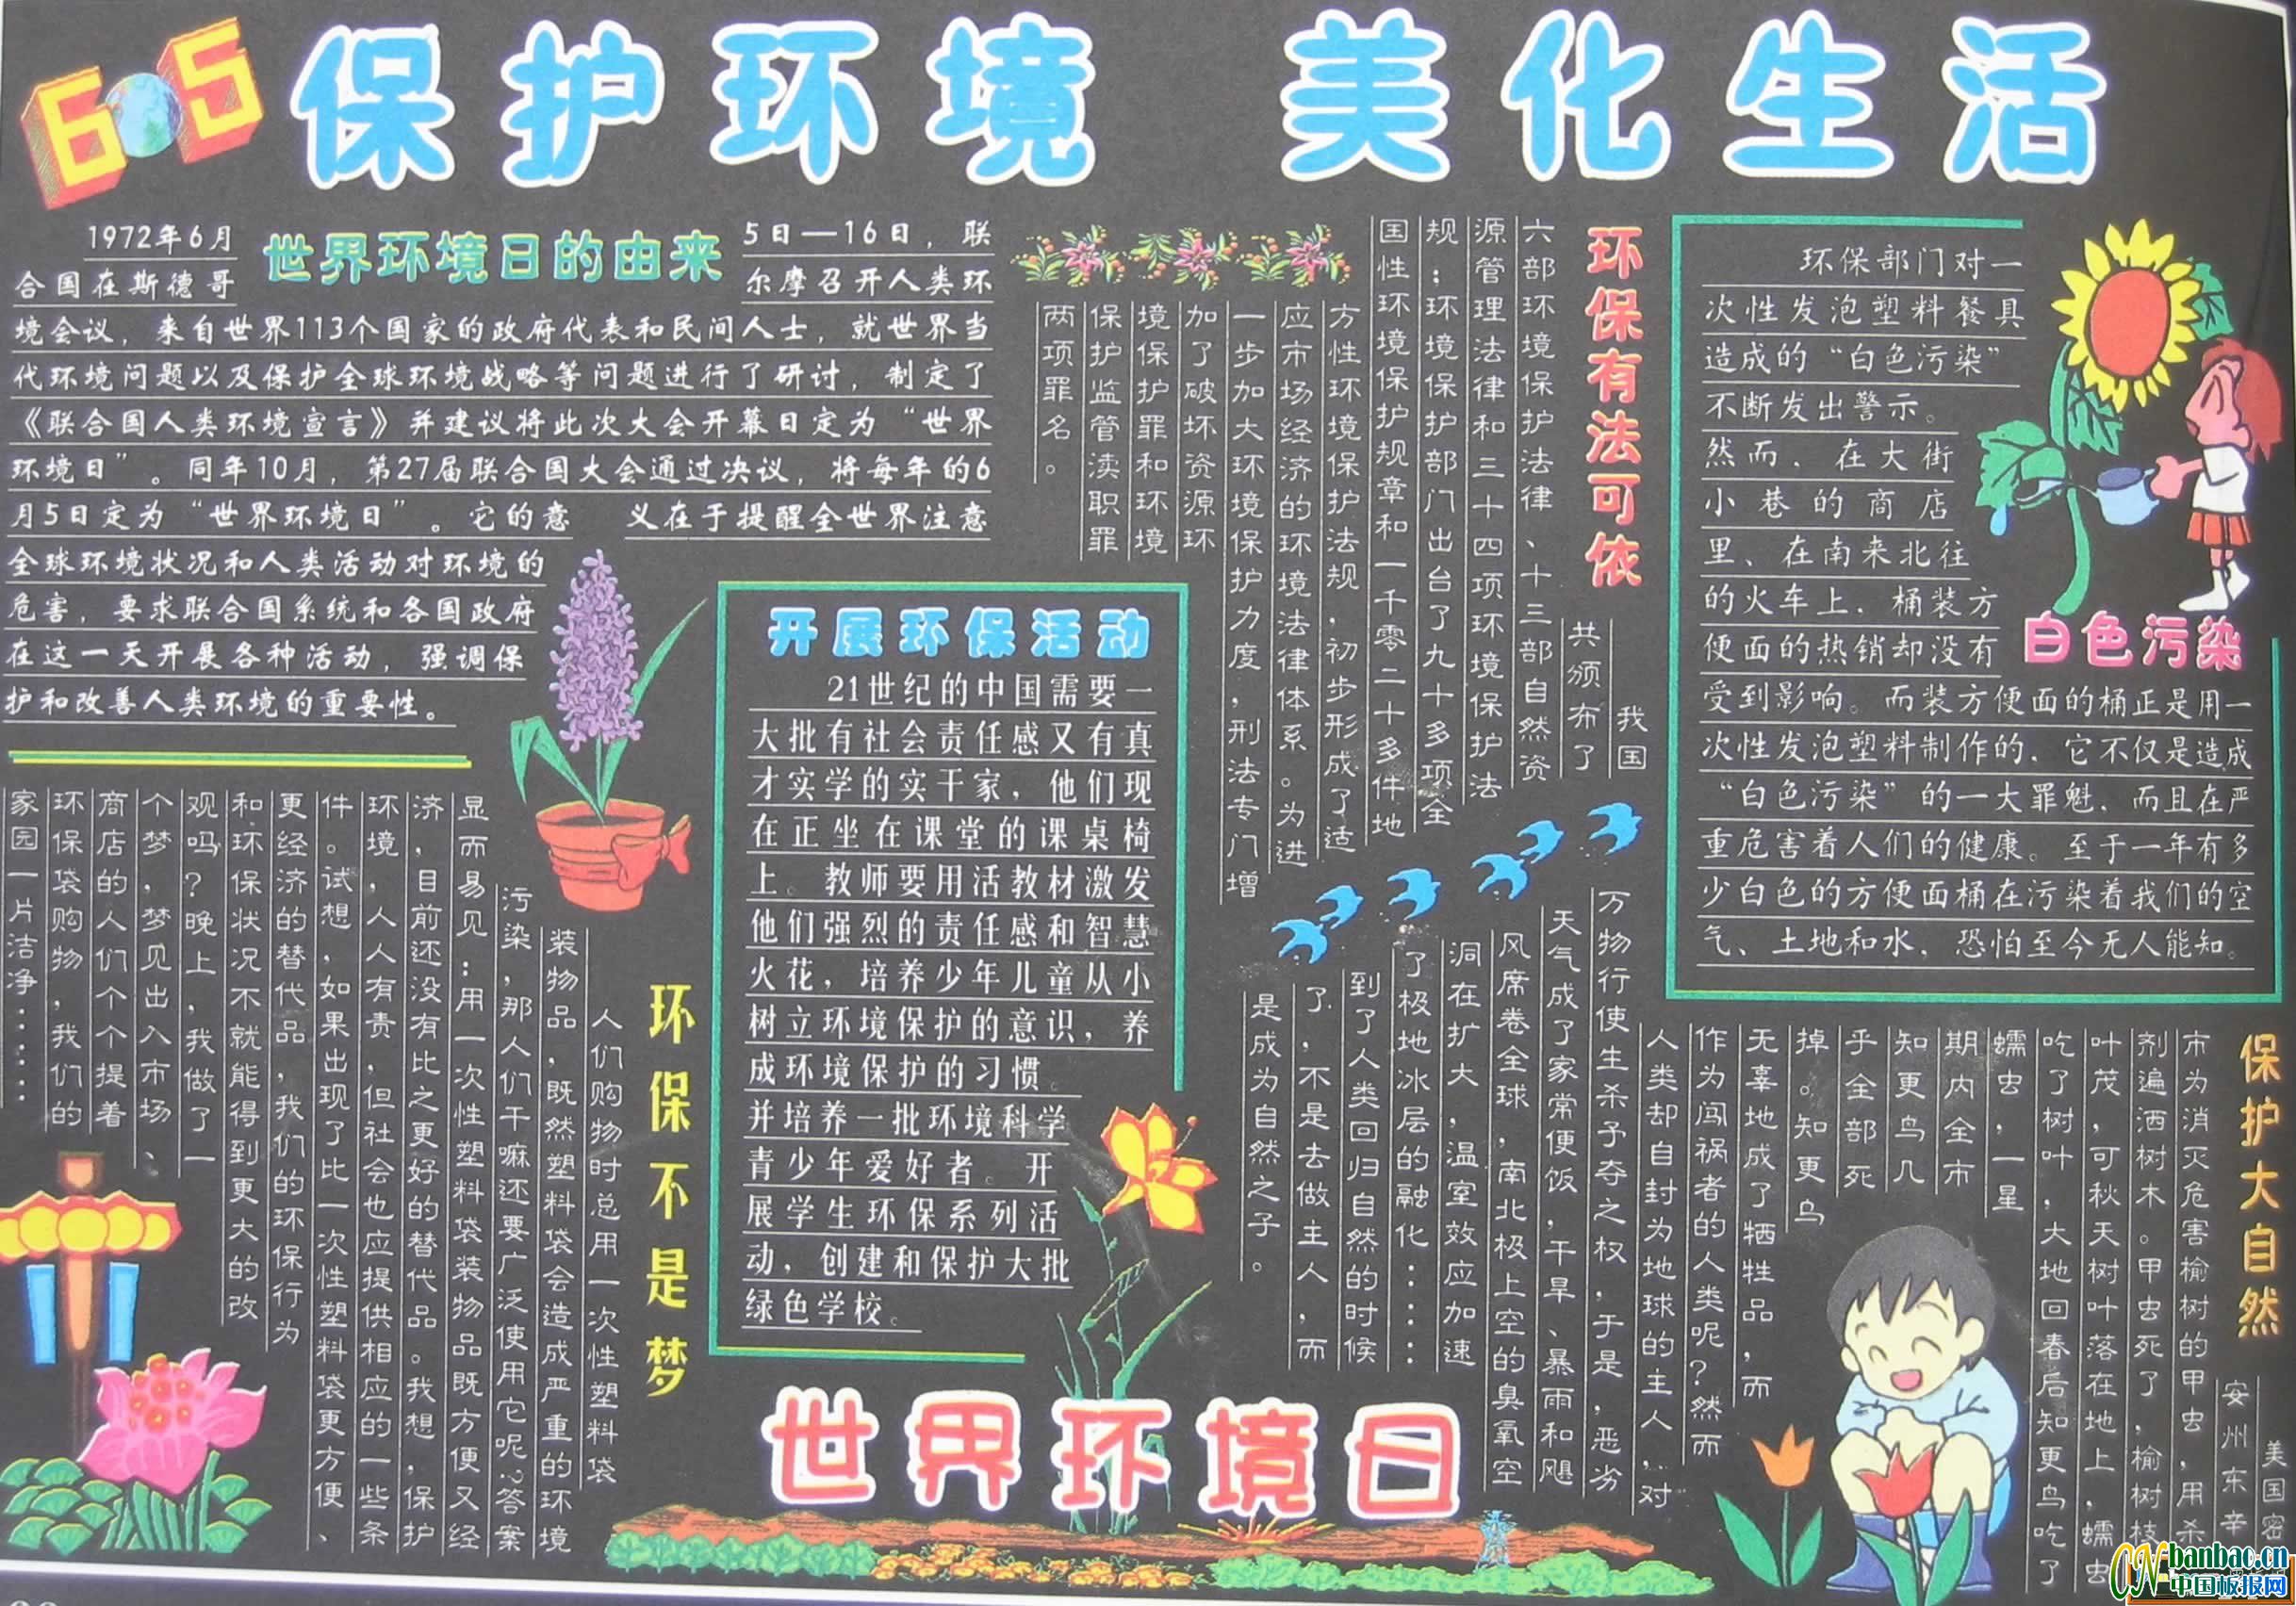 605
保护环境 美化生活
世界环境日的由来
1972年6月
5日—16日，联
合国在斯德哥
尔摩召开人类环
境会议，来自世界113个国家的政府代表和民间人士，就世界当
代环境问题以及保护全球环境战略等问题进行了研讨，制定了
《联合国人类环境宣言》并建议将此次大会开幕日定为“世界
环境日”。同年10月，第27届联合国大会通过决议，将每年的6
月5日定为“世界环境日”。它的意 义在于提醒全世界注意
全球环境状况和人类活动对环境的
危害，要求联合国系统和各国政府
在这一天开展各种活动，强调保
护和改善人类环境的重要性。
环保有法可依
我国
共颁布了
六部环境保护法律、十三部自然资
源管理法律和三十四项环境保护法
规；环境保护部门出台了九十多项全
国性环境保护规章和一千零二十多件地
方性环境保护法规，初步形成了适
应市场经济的环境法律体系。为进
一步加大环境保护力度，刑法专门增
加了破坏资源环
境保护罪和环境
保护监管渎职罪
两项罪名。
环保部门对一
次性发泡塑料餐具
造成的“白色污染”
不断发出警示。
然而，在大街
小巷的商店
里、在南来北往
的火车上，桶装方
便面的热销却没有
白色污染
受到影响。而装方便面的桶正是用一
次性发泡塑料制作的，它不仅是造成
“白色污染”的一大罪魁，而且在严
重危害着人们的健康。至于一年有多
少白色的方便面桶在污染着我们的空
气、土地和水，恐怕至今无人能知。
开展环保活动
21世纪的中国需要一
大批有社会责任感又有真
才实学的实干家，他们现
在正坐在课堂的课桌椅
上。教师要用活教材激发
他们强烈的责任感和智慧
火花，培养少年儿童从小
树立环境保护的意识，养
成环境保护的习惯。
并培养一批环境科学
青少年爱好者。开
展学生环保系列活
动，创建和保护大批
绿色学校。
环保不是梦
人们购物时总用一次性塑料袋
装物品，既然塑料袋会造成严重的环境
污染，那人们干嘛还要广泛使用它呢？答案
显而易见：用一次性塑料袋装物品既方便又经
济，目前还没有比之更好的替代品。我想，保护
环境，人人有责，但社会也应提供相应的一些条
件。试想，如果出现了比一次性塑料袋更方便、
更经济的替代品，我们的环保行为
和环保状况不就能得到更大的改
观吗？晚上，我做了一
个梦，梦见出入市场、
商店的人们个个提着
环保袋购物，我们的
家园一片洁净……
保护大自然
美国密
安州东辛
市为消灭危害榆树的甲虫，用杀
剂遍洒树木。甲虫死了，榆树枝
叶茂，可秋天树叶落在地上，蠕虫
吃了树叶，大地回春后知更鸟吃了
蠕虫，一星
期内全市
知更鸟几
乎全部死
掉。知更鸟
无辜地成了牺牲品，而
作为闯祸者的人类呢？然而
人类却自封为地球的主人，对
万物行使生杀予夺之权，于是，恶劣
天气成了家常便饭，干旱、暴雨和飓
风席卷全球，南北极上空的臭氧空
洞在扩大，温室效应加速
了极地冰层的融化……
到了人类回归自然的时候
了，不是去做主人，而
是成为自然之子。
世界环境日
CN banbao.cn
中国板报网